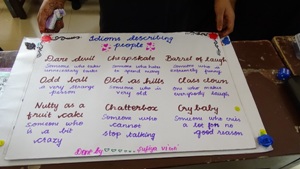 Idioms describing
people
Dare devil
Someone who takes
unnecessary risks
Cheapskate
Someone who hates
to spend money
Barrel of laugh
Someone who is
extremely funny
Odd ball
a very strange
person
Old as hills
Someone who is
very old
Class clown
One who makes
everybody laugh
Nutty as a
fruit cake
Someone who
is a bit
crazy
Chatterbox
Someone who
cannot
stop talking
Cry baby
Someone who cries
a lot for no
good reason
Done by